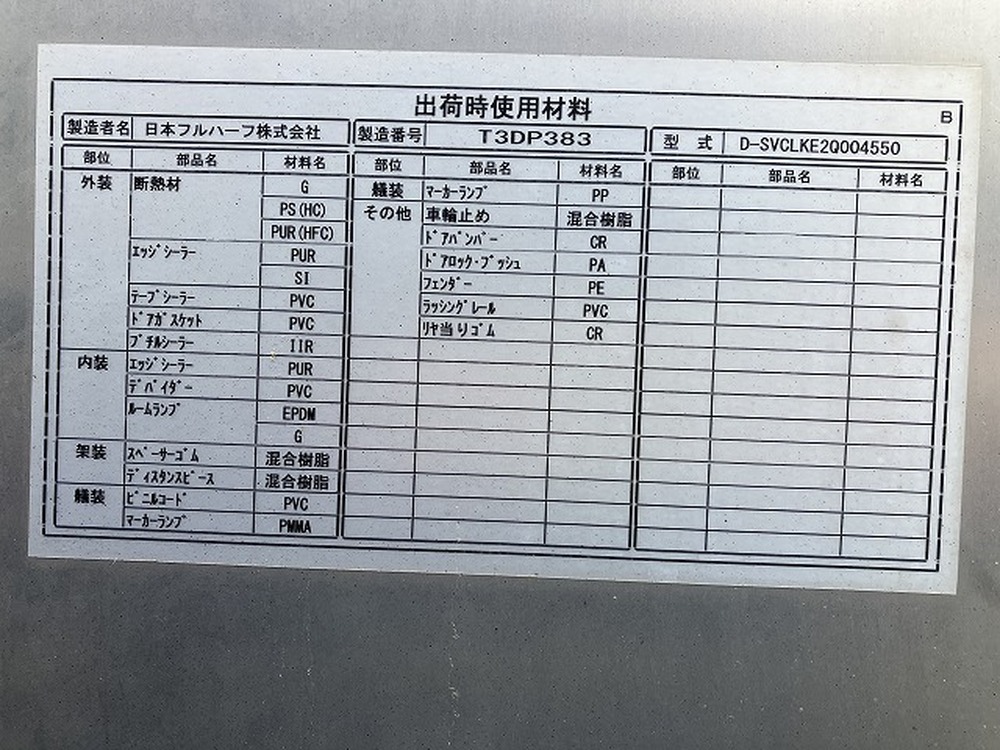 出荷時使用材料
B
製造者名 日本フルハーフ株式会社 製造番号 T3DP383 型式 D-SVCLKE2Q004550
部位 部品名 材料名 部位 部品名 材料名 部位 部品名 材料名
外装 断熱材 G 艤装 ﾏｰｶｰﾗﾝﾌﾟ PP
PS(HC) その他 車輪止め 混合樹脂
PUR(HFC) ﾄﾞｱﾊﾞﾝﾊﾟｰ CR
ｴｯｼﾞｼｰﾗｰ PUR ﾄﾞｱﾛｯｸ･ﾌﾞｯｼｭ PA
SI ﾌｪﾝﾀﾞｰ PE
ﾃｰﾌﾟｼｰﾗｰ PVC ﾗｯｼﾝｸﾞﾚｰﾙ PVC
ﾄﾞｱｶﾞｽｹｯﾄ PVC ﾘﾔ当りｺﾞﾑ CR
ﾌﾞﾁﾙｼｰﾗｰ IIR
内装 ｴｯｼﾞｼｰﾗｰ PUR
ﾃﾞﾊﾞｲﾀﾞｰ PVC
ﾙｰﾑﾗﾝﾌﾟ EPDM
G
架装 ｽﾍﾟｰｻｰｺﾞﾑ 混合樹脂
ﾃﾞｨｽﾀﾝｽﾋﾟｰｽ 混合樹脂
艤装 ﾋﾞﾆﾙｺｰﾄﾞ PVC
ﾏｰｶｰﾗﾝﾌﾟ PMMA